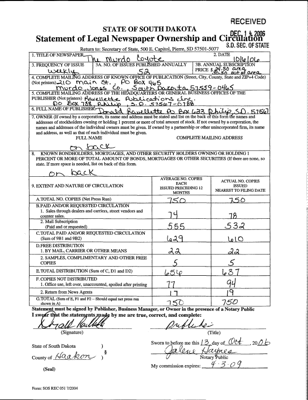 RECEIVED
DEC 14 2006
S.D. SEC. OF STATE
STATE OF SOUTH DAKOTA
Statement of Legal Newspaper Ownership and Circulation
Return to: Secretary of State, 500 E. Capitol, Pierre, SD 57501-5077
1. TITLE OF NEWSPAPER The Murdo Coyote
2. DATE 10/6/06
3. FREQUENCY OF ISSUE
Weekly
3A. NO. OF ISSUES PUBLISHED ANNUALLY
52
3B. ANNUAL SUBSCRIPTION
PRICE
4. COMPLETE MAILING ADDRESS OF KNOWN OFFICE OF PUBLICATION (Street, City, County, State and ZIP+4 Code)
(Not printers) 210 Main St. PO Box 465
Murdo, Jones Co. South Dakota 57559-0465
5. COMPLETE MAILING ADDRESS OF THE HEADQUARTERS OR GENERAL BUSINESS OFFICES OF THE
PUBLISHER Ravellette Publications, Inc.
PO Box 788 Philip, S.D. 57567-0788
6. FULL NAME OF PUBLISHER: Donald Ravellette PO Box 633 Philip, SD 57567
7. OWNER (If owned by a corporation, its name and address must be stated and list on the back of this form the names and
addresses of stockholders owning or holding 1 percent or more of total amount of stock. If not owned by a corporation, the
names and addresses of the individual owners must be given. If owned by a partnership or other unincorporated firm, its name
and address, as well as that of each individual must be given.
FULL NAME
COMPLETE MAILING ADDRESS
on back
8. KNOWN BONDHOLDERS, MORTGAGEES, AND OTHER SECURITY HOLDERS OWNING OR HOLDING 1
PERCENT OR MORE OF TOTAL AMOUNT OF BONDS, MORTGAGES OR OTHER SECURITIES (If there are none, so
state. If more space is needed, list on back of this form.
on back
9. EXTENT AND NATURE OF CIRCULATION
AVERAGE NO. COPIES
EACH ISSUED
PRECEDING 12
MONTHS
ACTUAL NO. COPIES
ISSUED
NEAREST TO FILING DATE
A. TOTAL NO. COPIES (Net Press Run) 750 750
B. PAID AND/OR REQUESTED CIRCULATION
1. Sales through dealers and carriers, street vendors and
counter sales. 74 78
2. Mail Subscription
(Paid and or requested) 555 532
C. TOTAL PAID AND/OR REQUESTED CIRCULATION
(Sum of 9B1 and 9B2) 629 610
D. FREE DISTRIBUTION
1. BY MAIL, CARRIER OR OTHER MEANS 22 22
2. SAMPLES, COMPLIMENTARY AND OTHER FREE
COPIES 5 5
E. TOTAL DISTRIBUTION (Sum of C, D1 and D2) 656 637
F. COPIES NOT DISTRIBUTED
1. Office use, left over, unaccounted, spoiled after printing 77 94
2. Return from News Agents 17 19
G. TOTAL (Sum of E, F1 and F2 – Should equal net press run
shown in A) 750 750
Statement must be signed by Publisher, Business Manager, or Owner in the presence of a Notary Public
I swear that the statements made by me are true, correct, and complete:
(Signature)
Publisher
(Title)
State of South Dakota )
County of Haakon )
(Seal)
Sworn to before me this 13 day of Oct 2006
Notary Public
My commission expires: 9-3-09
Form: SOS REC 051 7/2004